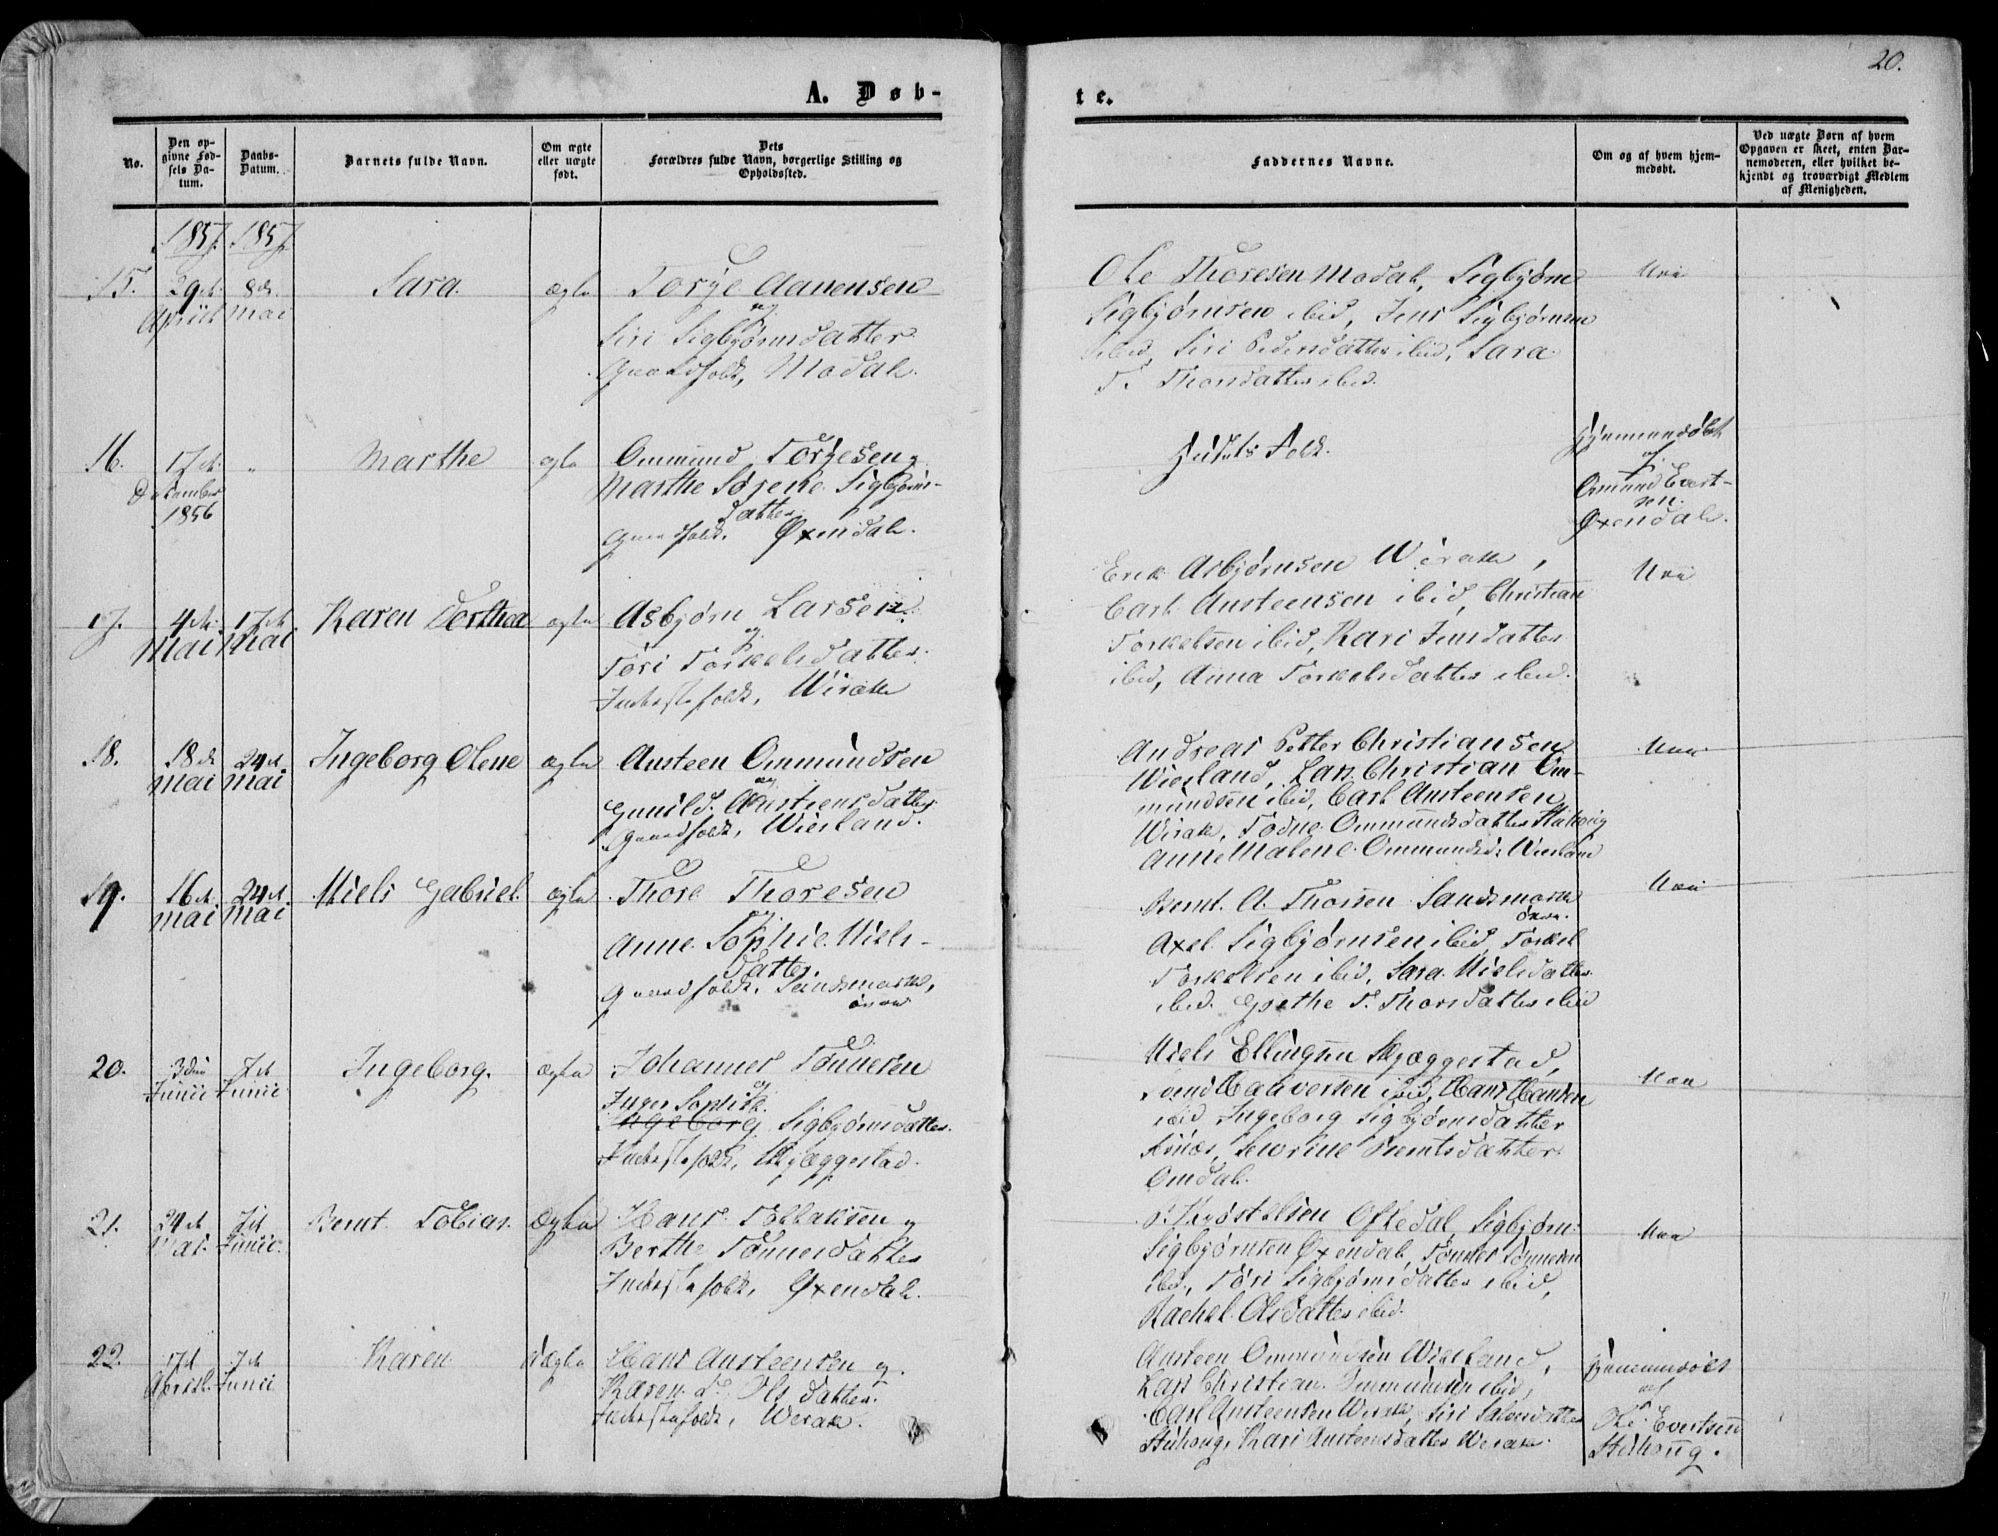 20.
A. Døb-
te.
No.
Den op-
givne Fød-
sels Da-
tum.
Daabs-
Datum.
Barnets fulde Navn.
Om ægte
eller uægte
født.
Dets
Forældres fulde Navn, borgerlige Stilling og
Opholdssted.
Faddernes Navne.
Om og af hvem hjem-
medøbt.
Ved uægte Børn af hvem
Opgaven er skeet, enten Bar-
nemoderen, eller hvilket be-
kjendt og troværdigt Medlem
af Menigheden.
1857. 1857.
15.
29de
April
8de
Mai
Sara.
ægte
Torje Aanensen
og
Siri Sigbjørnsdatter
Gaardfolk, Modal.
Ole Thoresen Modal, Sigbjørn
Sigbjørnsen ibid, Jens Sigbjørnsen
ibid, Siri Pedersdatter ibid, Sara
T. Thorsdatter ibid.
16.
17de
December
1856
"
Marthe
ægte
Ommund Torjesen og
Marthe Serene Sigbjørns-
datter
Gaardfolk. Øxendal.
Huusets Folk.
Hjemmedøbt
af
Ommund Evert-
sen
Øxendal.
17.
4de
Mai
17de
Mai
Karen Dorthea
ægte
Asbjørn Larsen
og
Tori Torkelsdatter
Inderstefolk, Wirak
Erik Asbjørnsen Wirak,
Carl Austeensen ibid, Christian
Torkelsen ibid, Kari Jensdatter
ibid, Anna Torkelsdatter ibid.
18.
18de
Mai
24de
Mai
Ingeborg Olene
ægte
Austeen Ommundsen
og
Gunild Austensdatter
Gaardfolk, Wiesland.
Andreas Petter Christiansen
Wiesland, Lars Christian Om-
mundsen ibid, Carl Austeensen
Wirak, Todne Ommundsdatter
Anne Malene Ommundsd. Wiesland
19.
16de
Mai
24de
Mai
Niels Gabriel
ægte
Thore Thoresen
og
Anne Sophie Niels-
datter
Gaardfolk. Sandsmark,
øvre
Bernt A. Thorsen Sandsmark
øvre.
Axel Sigbjørnsen ibid, Torkel
Torkelsen ibid, Sara Nielsdatter
ibid. Grethe T. Thorsdatter ibid
20.
3die
Junii
7de
Junii
Ingeborg.
ægte
Johannes Tønnesen
og
Inger Sophie
Ingeborg Sigbjørnsdatter
Inderstefolk, Skjæggestad.
Niels Ellingsen Skjæggestad,
Svend Haaversen ibid, Hans Hansen
ibid Ingeborg Sigbjørnsdatter
Severine Berntsdatter
Omdal.
21.
24de
Mai.
7de
Junii
Bernt Tobias.
ægte
Hans Tollaksen og
Berthe Tønnesdatter
Inderstefolk, Øxendal.
Oftedal, Sigbjørn
Sigbjørnsen Øxendal, Tønnes Tønnesen
ibid, Tori Sigbjørnsdatter ibid,
Rachel Olsdatter ibid.
22.
17de
April
7de
Junii
Karen
ægte
Hans Austeensen og
Karen Olsdatter.
Inderstefolk, Wirak.
Austeen Ommundsen Wiesland,
Lars Christian Ommundsen ibid,
Carl Austeensen Wirak, Siri
Stuhoug, Kari Austensdatter Wirak.
Hjemmedøbt
af
Ole Evertsen
Stuhoug.